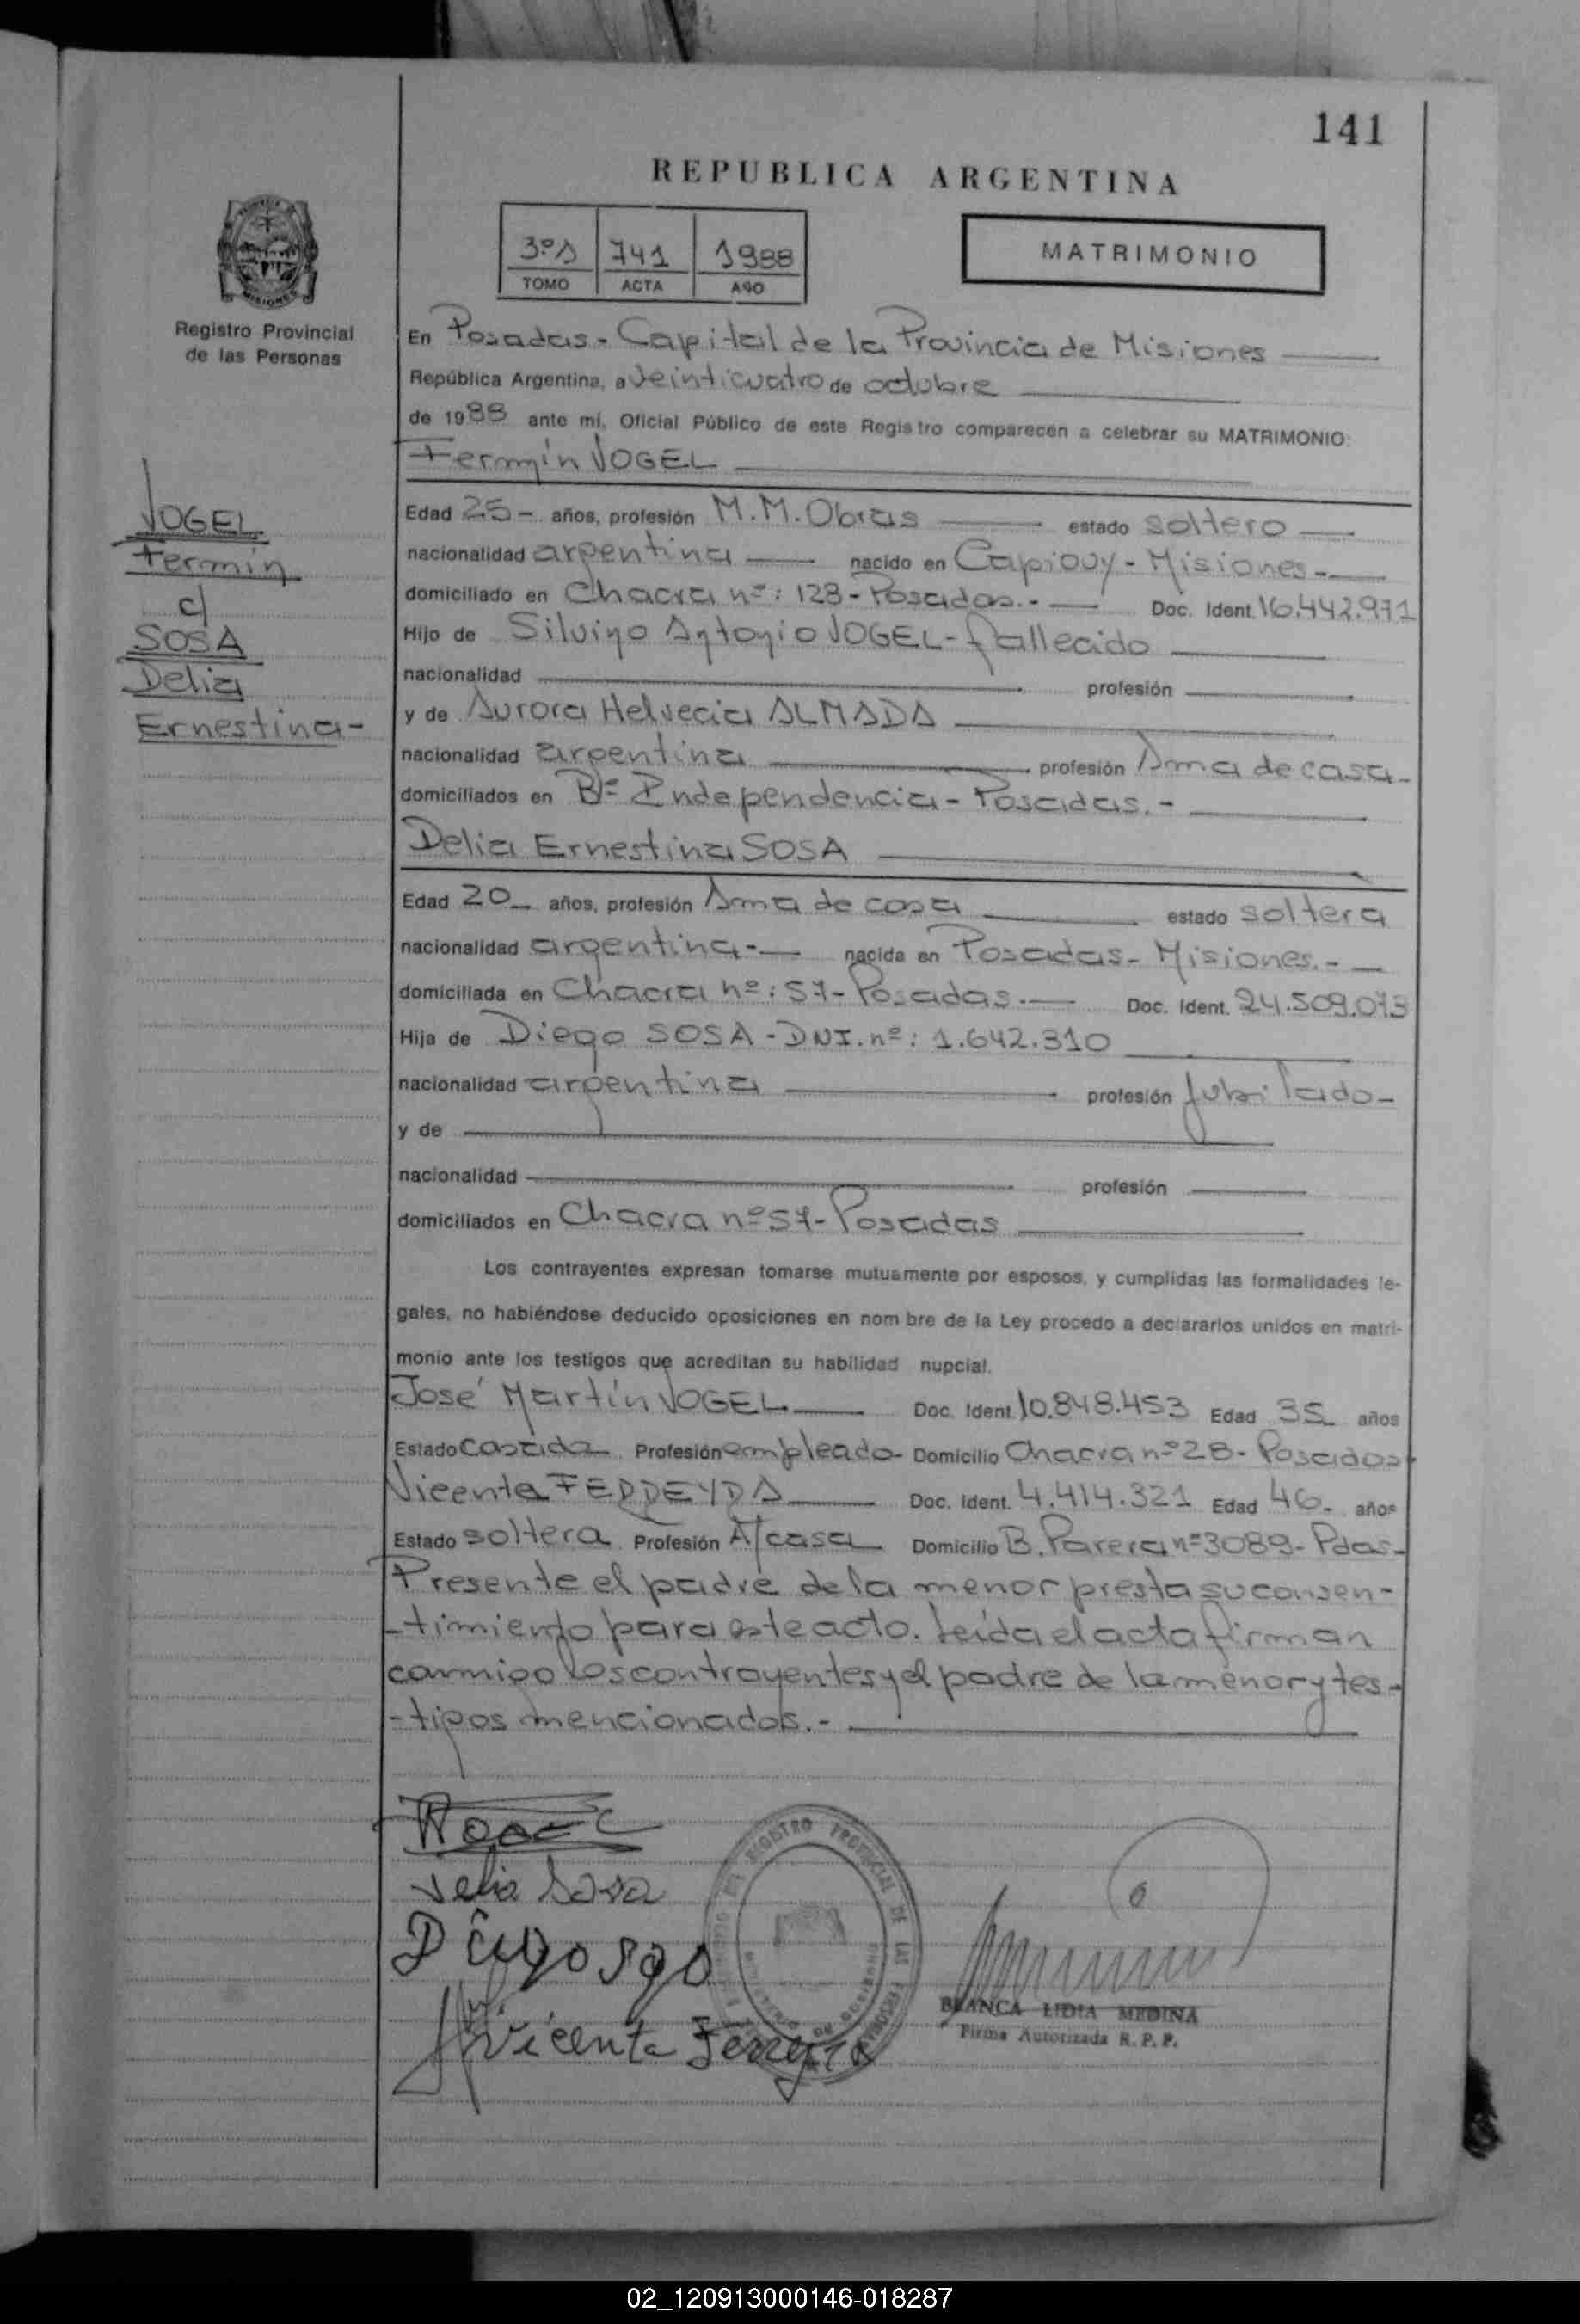 141
REPUBLICA ARGENTINA
3º A 741 1988
TOMO ACTA AÑO
MATRIMONIO
Registro Provincial
de las Personas
En Posadas - Capital de la Provincia de Misiones
República Argentina, a veinticuatro de octubre
de 1988 ante mí, Oficial Público de este Registro comparecen a celebrar su MATRIMONIO:
Fermín VOGEL
VOGEL
Fermín
c/
SOSA
Delia
Ernestina-
Edad 25- años, profesión M.M.Obras estado soltero
nacionalidad argentina nacido en Capiovy - Misiones-
domiciliado en Chacra nº: 128 - Posadas.- Doc. Ident. 16.442.971
Hijo de Silvino Antonio VOGEL - fallecido
nacionalidad profesión
y de Aurora Helvecia ALMADA
nacionalidad argentina profesión Ama de casa-
domiciliados en Bº Independencia - Posadas.-
Delia Ernestina SOSA
Edad 20- años, profesión Ama de casa estado soltera
nacionalidad argentina- nacida en Posadas - Misiones.-
domiciliada en Chacra nº: 57- Posadas.- Doc. Ident. 24.509.073
Hija de Diego SOSA - DNI. nº: 1.642.310
nacionalidad argentina profesión jubilado-
y de
nacionalidad profesión
domiciliados en Chacra nº57- Posadas
Los contrayentes expresan tomarse mutuamente por esposos, y cumplidas las formalidades le-
gales, no habiéndose deducido oposiciones en nom bre de la Ley procedo a declararlos unidos en matri-
monio ante los testigos que acreditan su habilidad nupcial.
José Martín VOGEL Doc. Ident. 10.848.453 Edad 35 años
Estado casado Profesión empleado- Domicilio Chacra nº28- Posadas
Vicenta FERREYRA Doc. Ident. 4.414.321 Edad 46- años
Estado soltera Profesión A/casa Domicilio B. Parera nº3089- Pdas-
Presente el padre de la menor presta su consen-
-timiento para este acto. Leída el acta firman
conmigo los contrayentes y el padre de la menor y tes-
-tigos mencionados.-
Delia Sosa
Diego Sosa
Vicenta Ferreyra
REGISTRO PROVINCIAL DE LAS PERSONAS
BLANCA LIDIA MEDINA
Firma Autorizada R. P. P.
02_120913000146-018287